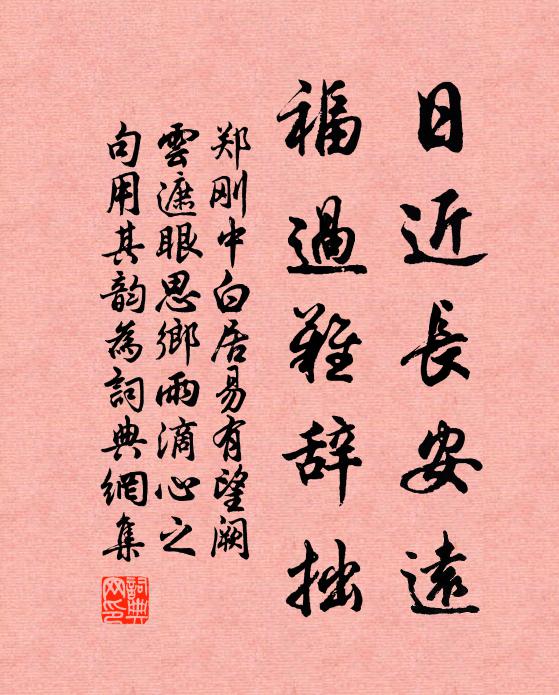 日近長安遠
福過難辞拙
郑刚中白居易有望阙
雲遮眼思鄉雨滴心之
句用其韵為詞典網集
詞典网印